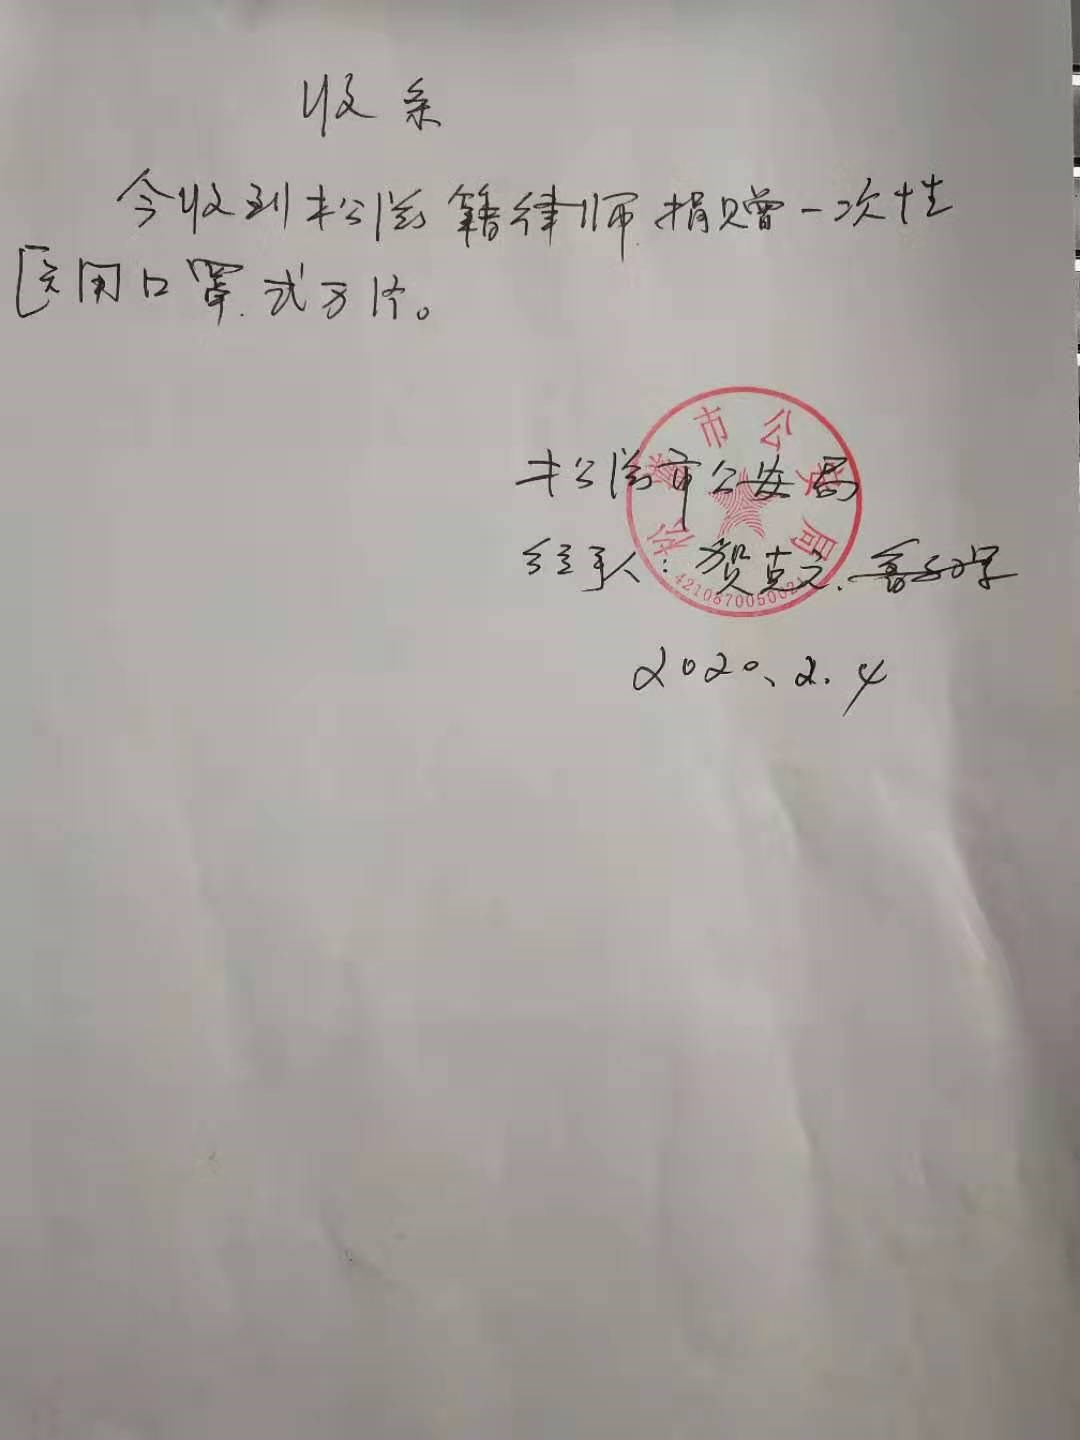 收条
今收到松滋籍律师捐赠一次性
医用口罩式万片。
松滋市公安局
经手人：贺克文.
2020.2.4
松滋市公安局